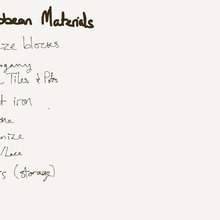 bbean Materials
eze blocks
ogany
Tiles & Pots
t iron
one
nize
/Lace
s (storage)